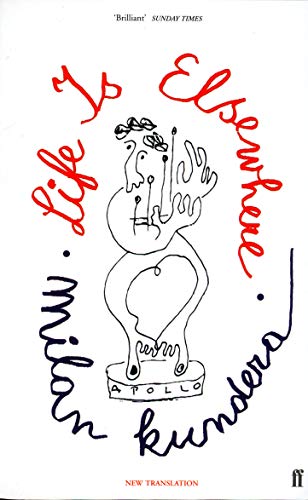 'Brilliant' SUNDAY TIMES
Life Is Elsewhere
· Milan Kundera ·
APOLLO
NEW TRANSLATION
ff